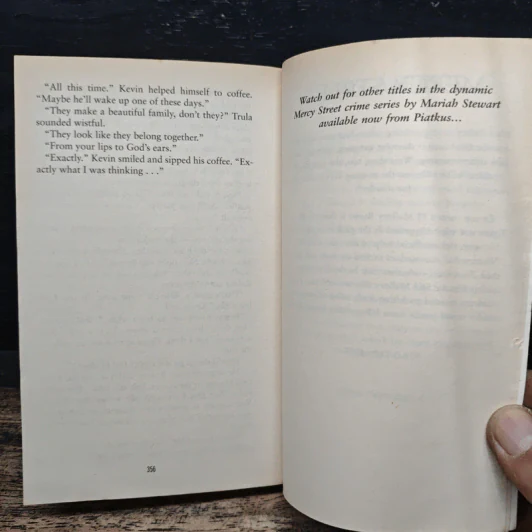 “All this time.” Kevin helped himself to coffee.
“Maybe he’ll wake up one of these days.”
“They make a beautiful family, don’t they?” Trula
sounded wistful.
“They look like they belong together.”
“From your lips to God’s ears.”
“Exactly.” Kevin smiled and sipped his coffee. “Ex-
actly what I was thinking . . .”
356
Watch out for other titles in the dynamic
Mercy Street crime series by Mariah Stewart
available now from Piatkus...